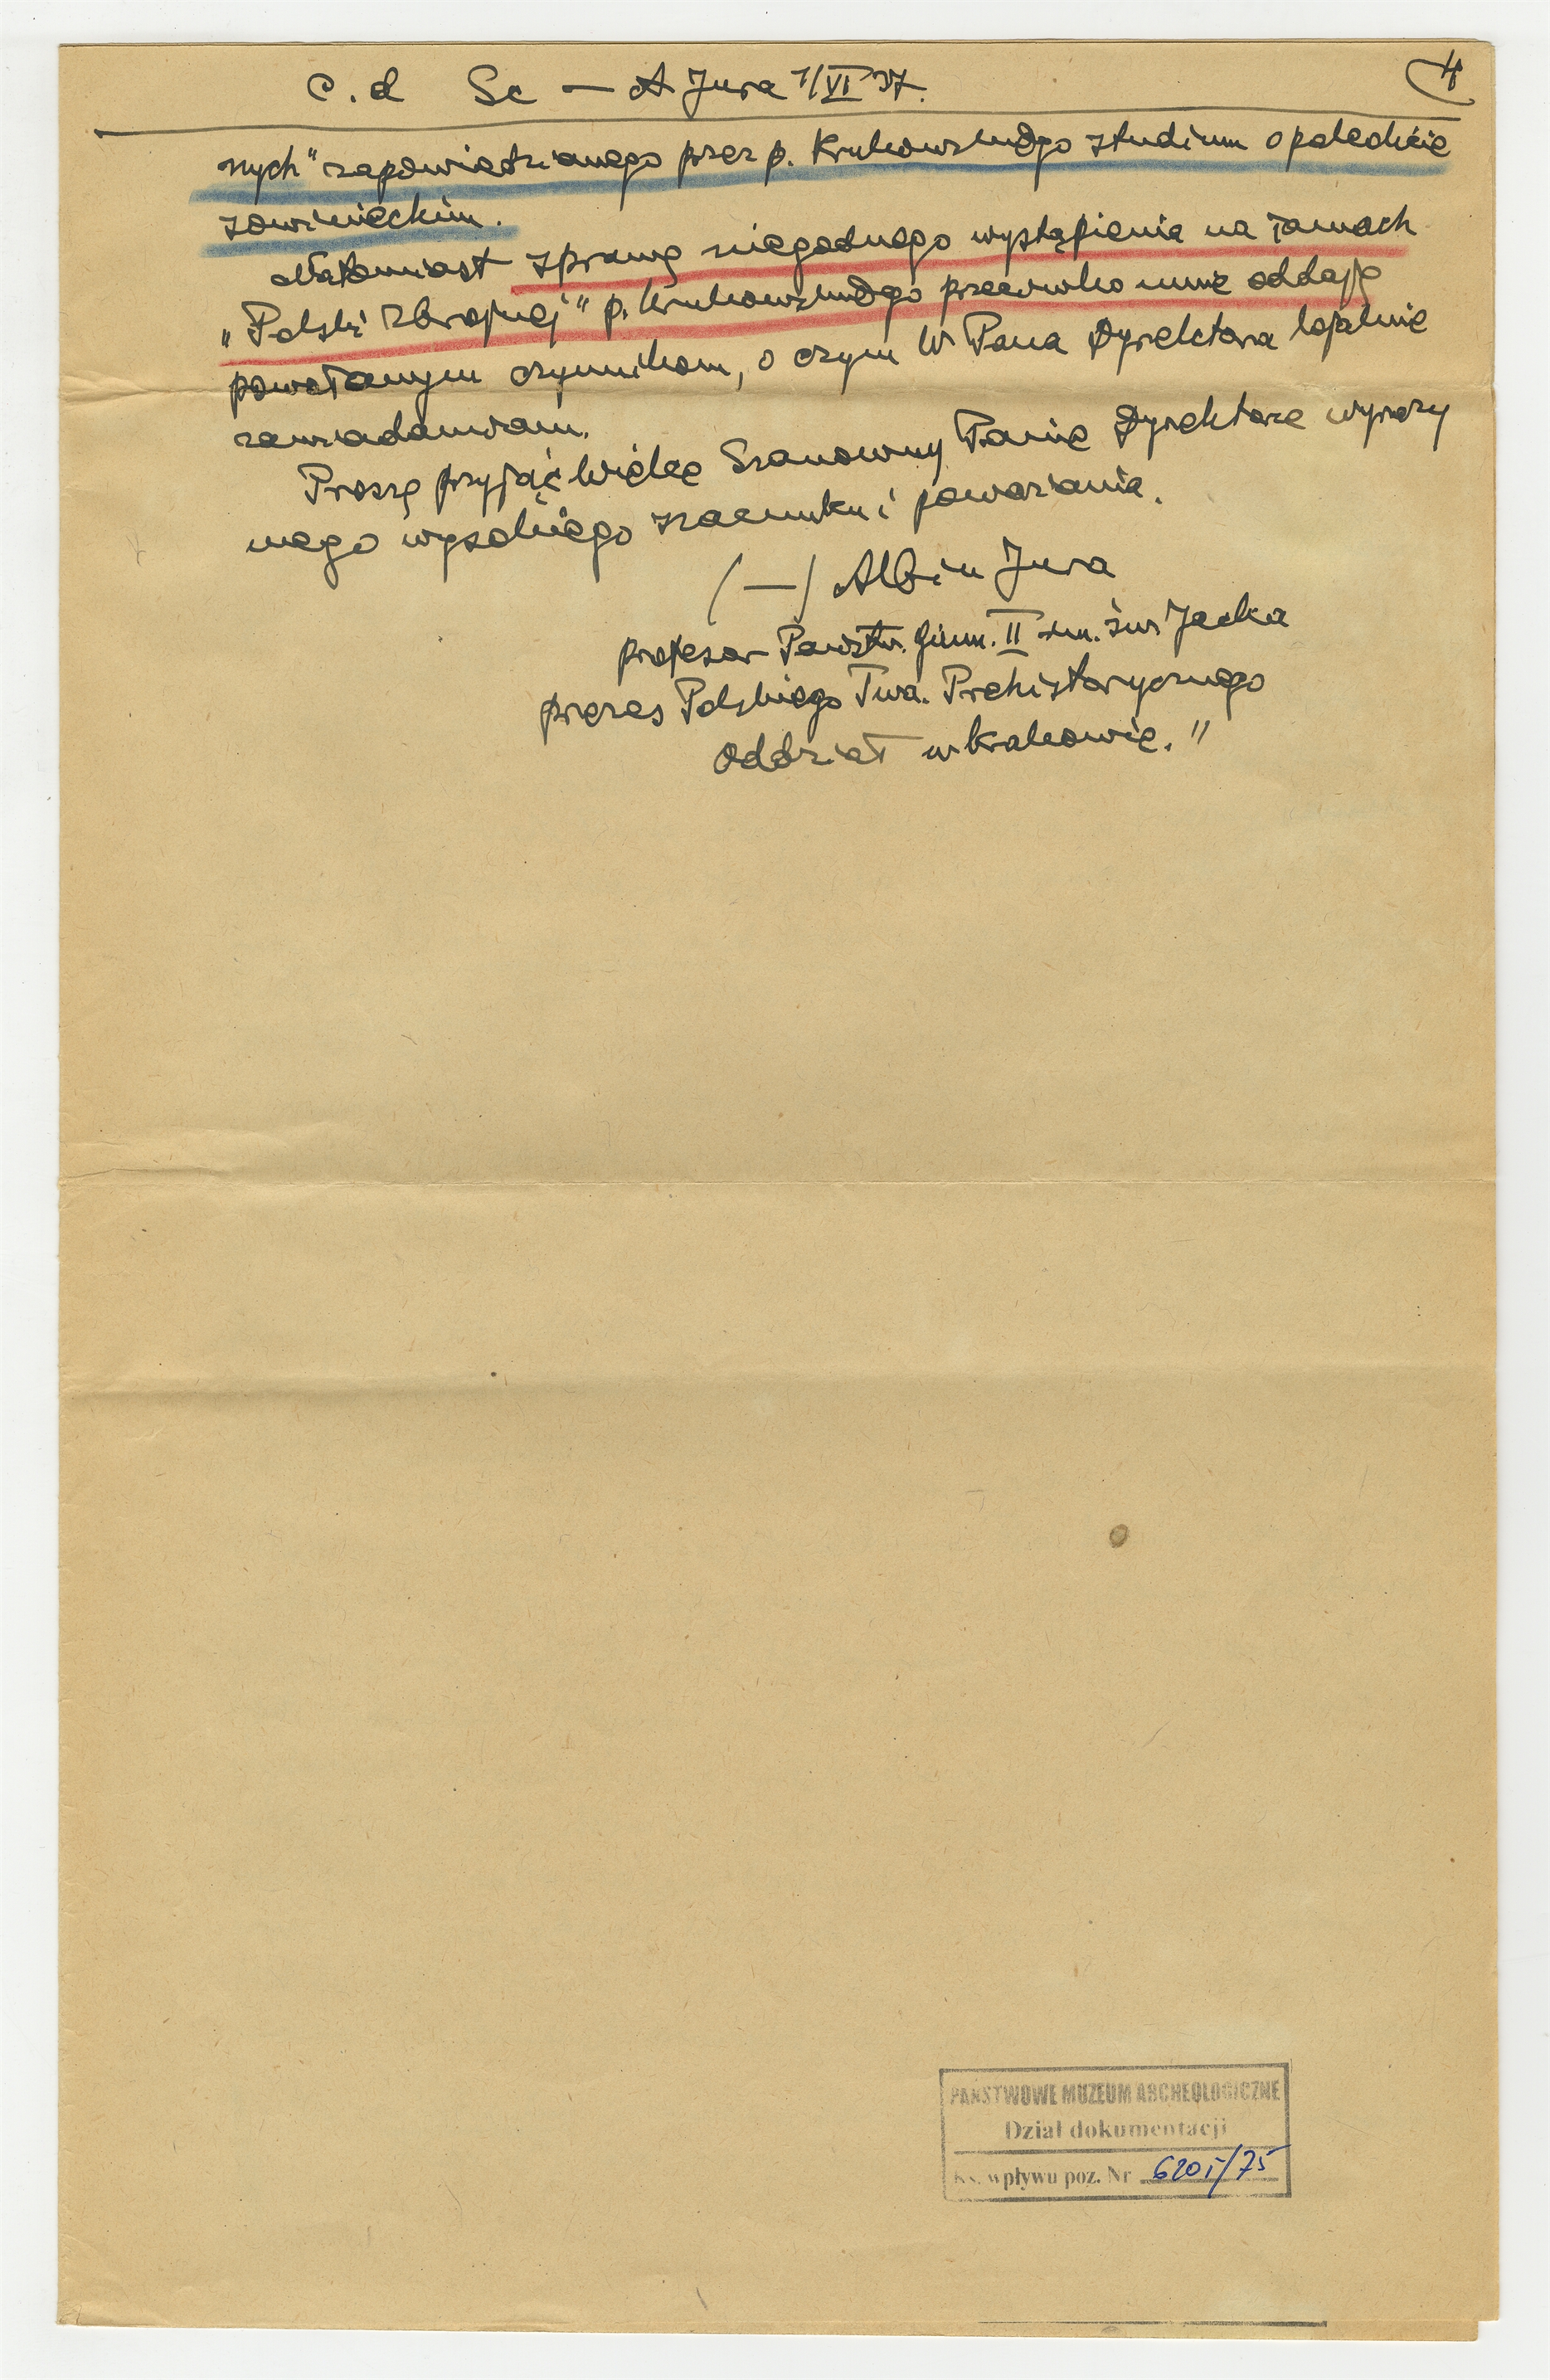 c.d Sc — A Jura 1/VI 37.
4
nych" zapowiedzianego przez p. Krukowskiego studium o paleolicie
sowinieckim.
Natomiast sprawę niegodnego wystąpienia na łamach
„Polski Zbrojnej" p. Krukowskiego przeciwko mnie oddaję
powołanym czynnikom, o czym W Pana Dyrektora lojalnie
zawiadamiam.
Proszę przyjąć Wielce Szanowny Panie Dyrektorze wyrazy
mego wysokiego szacunku i poważania.
(—) Albin Jura
profesor Państw. Gimn. II im. św Jacka
prezes Polskiego Twa. Prehistorycznego
Oddział w Krakowie."
PAŃSTWOWE MUZEUM ARCHEOLOGICZNE
Dział dokumentacji
Ks. wpływu poz. Nr